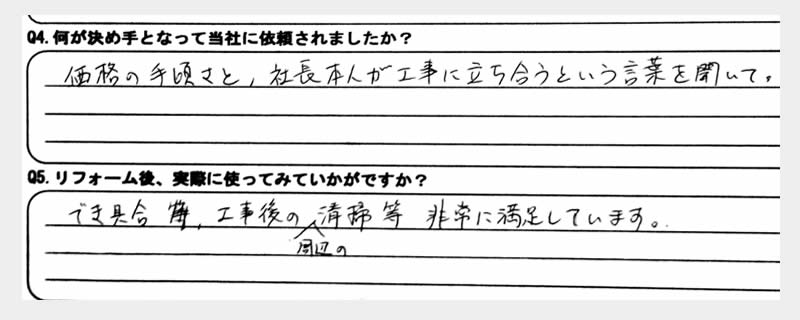 Q4. 何が決め手となって当社に依頼されましたか？
価格の手頃さと，社長本人が工事に立ち合うという言葉を聞いて。
Q5. リフォーム後、実際に使ってみていかがですか？
でき具合，工事後の周辺の清掃等 非常に満足しています。